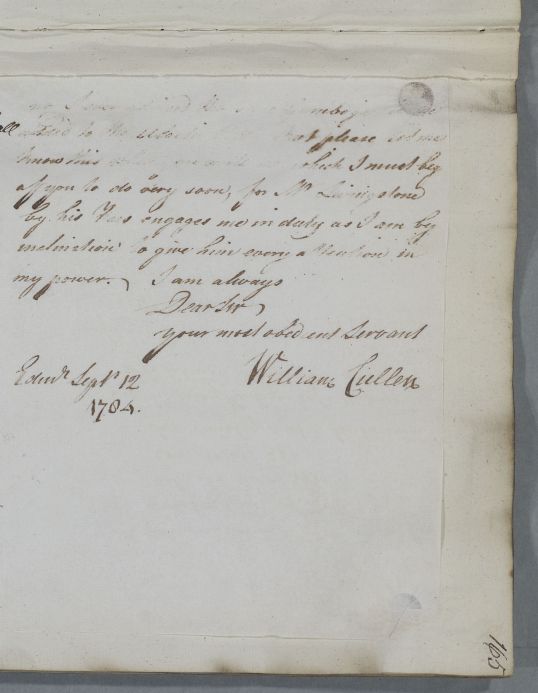 all
to the please let me
know this which I must beg
of you to do very soon, for Mr Livingstone
by his Fees engages me in duty as I am by
inclination to give him every attention in
my power. I am always
Dear Sir
your most obedient Servant
William Cullen
Edinr. Septr. 12
1784.
165